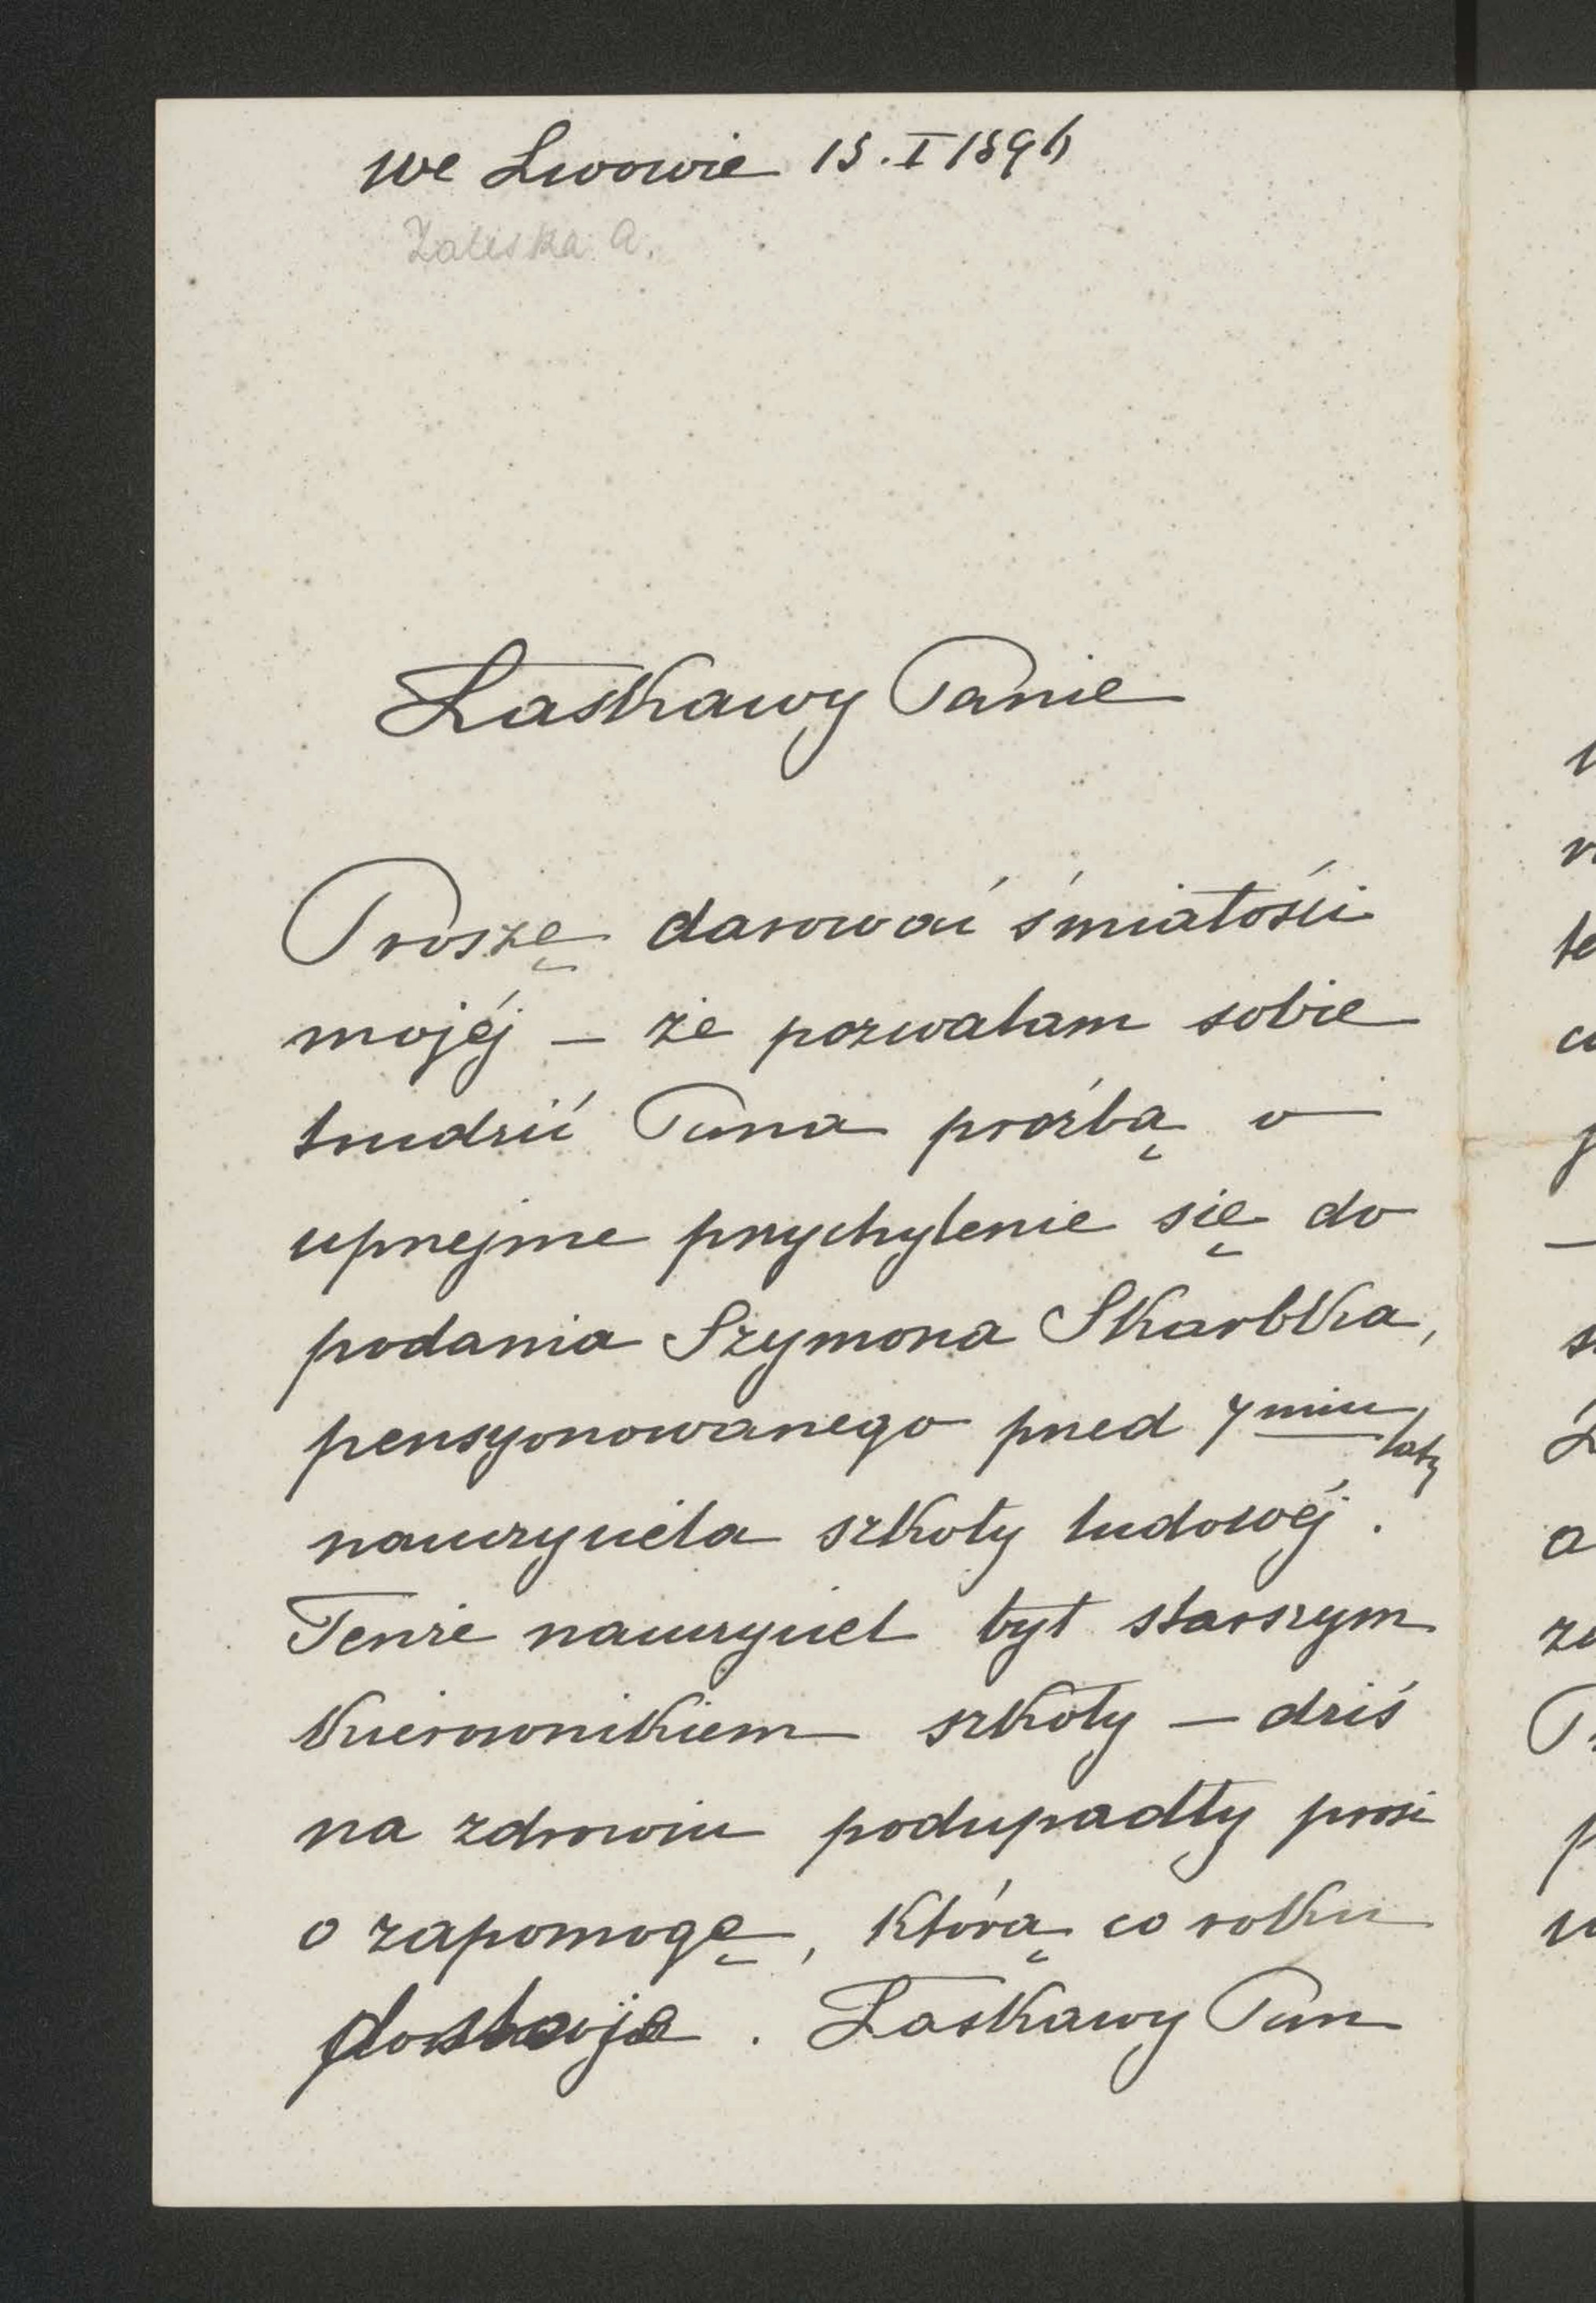 We Lwowie 15. I 1896
Zaleska A.
Łaskawy Panie
Proszę darować śmiałości
mojéj – że pozwalam sobie
trudzić Pana prośbą o
uprzejme przychylenie się do
podania Szymona Skarbka,
pensyonowanego przed 7miu laty
nauczyciela szkoły ludowéj.
Tenże nauczyciel był starszym
kierownikiem szkoły – dziś
na zdrowiu podupadły prosi
o zapomogę, którą co roku
dostaje. Łaskawy Pan